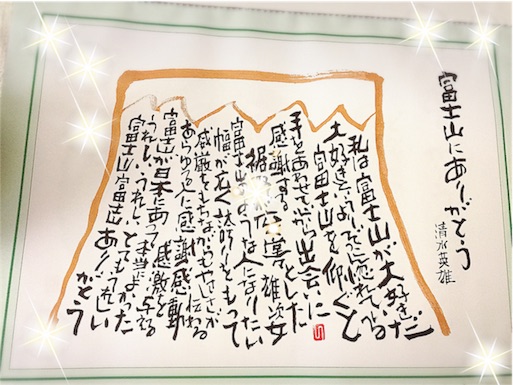 富士山にありがとう
清水英雄
私は富士山が大好きだ
大好きというより 惚れている
富士山を仰ぐと
手をあわせて心から出会いに
感謝する 々とした
裾 雄姿
富士山のような人になりたい
幅が広く誇りをもって
感激をもち やさしさが伝わる
あらゆる人に感謝感動
感激を与える
富士が日本にあって本当によかった
うれしいうれしいとてもうれしい
富士山富士山ありがとう